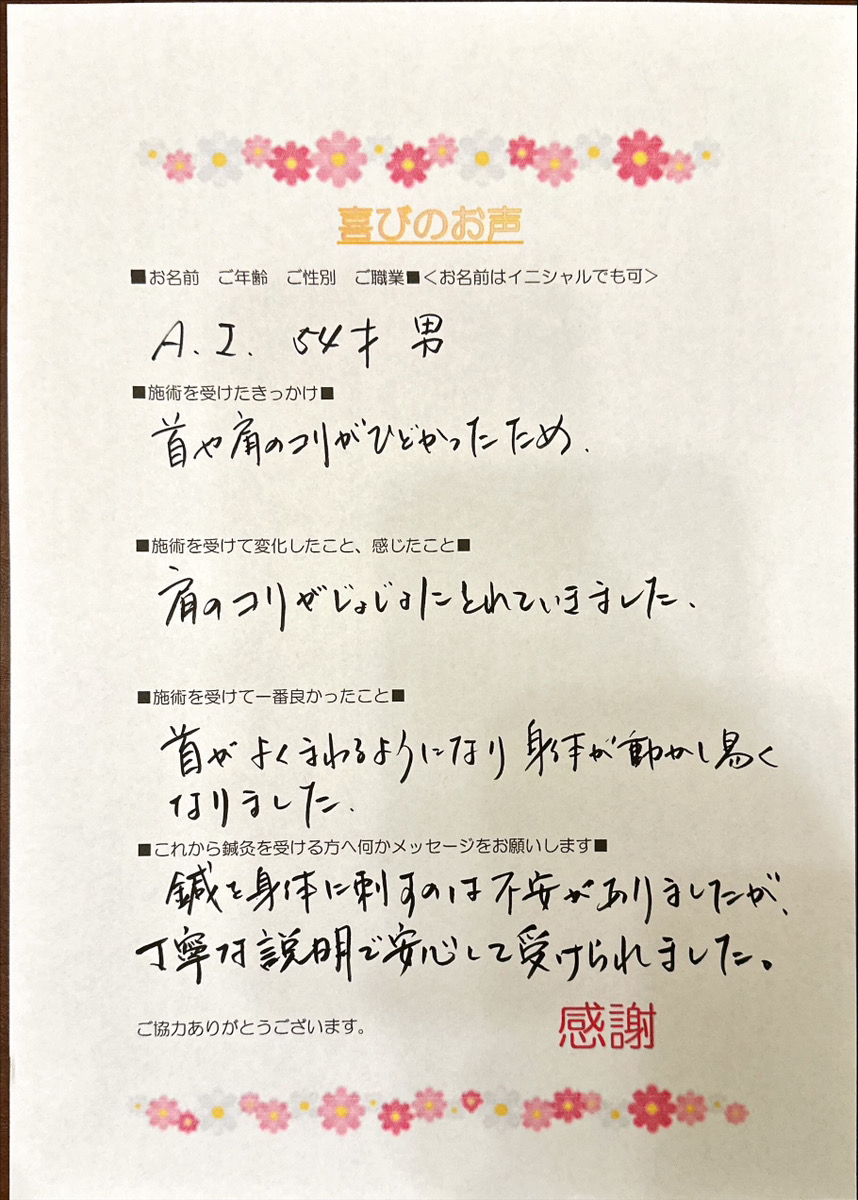 喜びのお声
■お名前　ご年齢　ご性別　ご職業■＜お名前はイニシャルでも可＞
A. I. 54才 男
■施術を受けたきっかけ■
首や肩のコリがひどかったため.
■施術を受けて変化したこと、感じたこと■
肩のコリがじょじょにとれていきました.
■施術を受けて一番良かったこと■
首がよくまわるようになり 身体が動かし易く
なりました.
■これから鍼灸を受ける方へ何かメッセージをお願いします■
鍼を身体に刺すのは不安がありましたが、
丁寧な説明で安心して受けられました。
ご協力ありがとうございます。
感謝